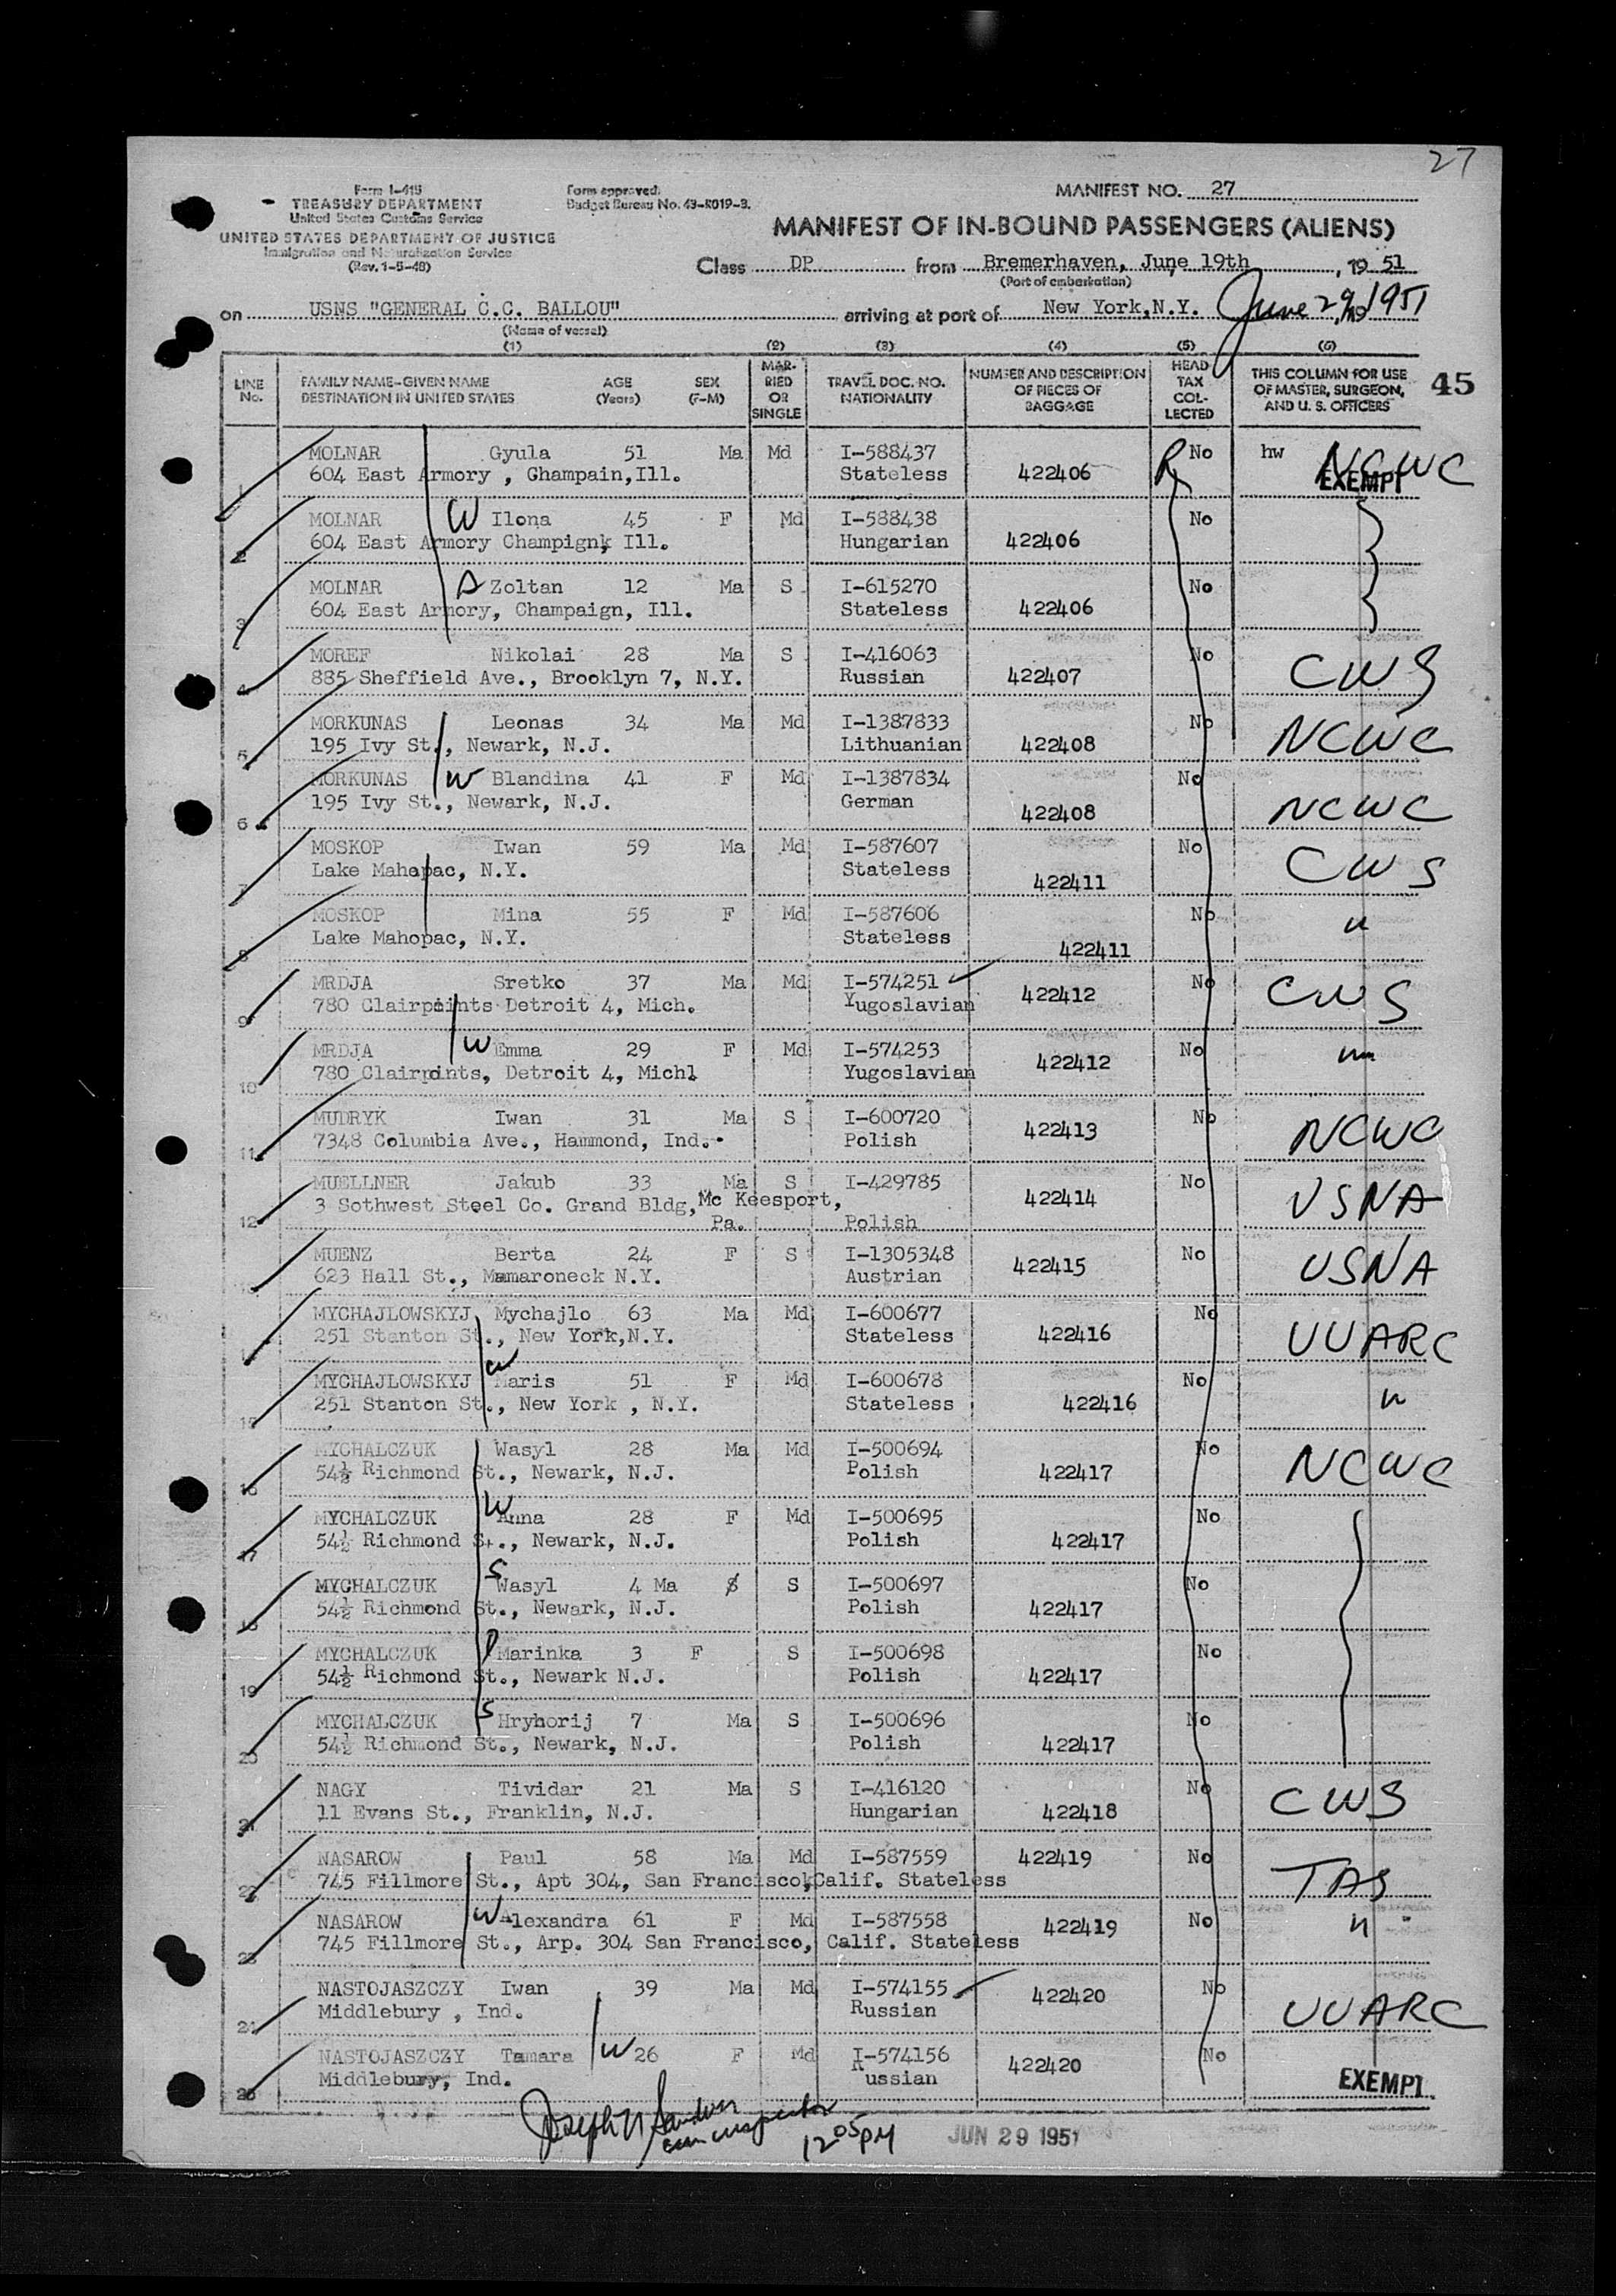 27
Form I-415
TREASURY DEPARTMENT
United States Customs Service
UNITED STATES DEPARTMENT OF JUSTICE
Immigration and Naturalization Service
(Rev. 1-5-48)
Form approved.
Budget Bureau No. 43-R019-3.
MANIFEST NO. 27
MANIFEST OF IN-BOUND PASSENGERS (ALIENS)
Class DP from Bremerhaven, June 19th, 19 51
(Port of embarkation)
on USNS "GENERAL C.C. BALLOU" arriving at port of New York,N.Y. June 29, 1951
(Name of vessel)
(1) (2) (3) (4) (5) (6)
LINE No. FAMILY NAME–GIVEN NAME DESTINATION IN UNITED STATES AGE (Years) SEX (F–M) MARRIED OR SINGLE TRAVEL DOC. NO. NATIONALITY NUMBER AND DESCRIPTION OF PIECES OF BAGGAGE HEAD TAX COLLECTED THIS COLUMN FOR USE OF MASTER, SURGEON, AND U. S. OFFICERS 45
1 MOLNAR Gyula 51 Ma Md I-588437 No hw NCWC
604 East Armory , Ghampain,Ill. Stateless 422406 EXEMPT
2 MOLNAR W Ilona 45 F Md I-588438 No
604 East Armory Champignk, Ill. Hungarian 422406
3 MOLNAR D Zoltan 12 Ma S I-615270 No
604 East Armory, Champaign, Ill. Stateless 422406
4 MOREF Nikolai 28 Ma S I-416063 No CWS
885 Sheffield Ave., Brooklyn 7, N.Y. Russian 422407
5 MORKUNAS Leonas 34 Ma Md I-1387833 No NCWC
195 Ivy St., Newark, N.J. Lithuanian 422408
6 MORKUNAS W Blandina 41 F Md I-1387834 No NCWC
195 Ivy St., Newark, N.J. German 422408
7 MOSKOP Iwan 59 Ma Md I-587607 No CWS
Lake Mahopac, N.Y. Stateless 422411
8 MOSKOP Mina 55 F Md I-587606 No "
Lake Mahopac, N.Y. Stateless 422411
9 MRDJA Sretko 37 Ma Md I-574251 No CWS
780 Clairpoints Detroit 4, Mich. Yugoslavian 422412
10 MRDJA W Emma 29 F Md I-574253 No "
780 Clairpoints, Detroit 4, Michl Yugoslavian 422412
11 MUDRYK Iwan 31 Ma S I-600720 No NCWC
7348 Columbia Ave., Hammond, Ind. Polish 422413
12 MUELLNER Jakub 33 Ma S I-429785 No USNA
3 Sothwest Steel Co. Grand Bldg, Mc Keesport, 422414
Pa. Polish
MUENZ Berta 24 F S I-1305348 No USNA
623 Hall St., Mamaroneck N.Y. Austrian 422415
MYCHAJLOWSKYJ Mychajlo 63 Ma Md I-600677 No UUARC
251 Stanton St., New York,N.Y. Stateless 422416
15 MYCHAJLOWSKYJ W Maris 51 F Md I-600678 No "
251 Stanton St., New York , N.Y. Stateless 422416
16 MYCHALCZUK Wasyl 28 Ma Md I-500694 No NCWC
54½ Richmond St., Newark, N.J. Polish 422417
17 MYCHALCZUK W Anna 28 F Md I-500695 No
54½ Richmond St., Newark, N.J. Polish 422417
18 MYCHALCZUK S Wasyl 4 Ma S S I-500697 No
54½ Richmond St., Newark, N.J. Polish 422417
19 MYCHALCZUK D Marinka 3 F S I-500698 No
54½ Richmond St., Newark N.J. Polish 422417
20 MYCHALCZUK S Hryhorij 7 Ma S I-500696 No
54½ Richmond St., Newark, N.J. Polish 422417
21 NAGY Tividar 21 Ma S I-416120 No CWS
11 Evans St., Franklin, N.J. Hungarian 422418
22 NASAROW Paul 58 Ma Md I-587559 422419 No TAS
745 Fillmore St., Apt 304, San Francisco,Calif. Stateless
23 NASAROW W Alexandra 61 F Md I-587558 422419 No "
745 Fillmore St., Arp. 304 San Francisco, Calif. Stateless
24 NASTOJASZCZY Iwan 39 Ma Md I-574155 No UUARC
Middlebury , Ind. Russian 422420
25 NASTOJASZCZY Tamara W 26 F Md I-574156 No
Middlebury, Ind. Russian 422420 EXEMPT
Joseph inspector
12 05 PM
JUN 29 1951